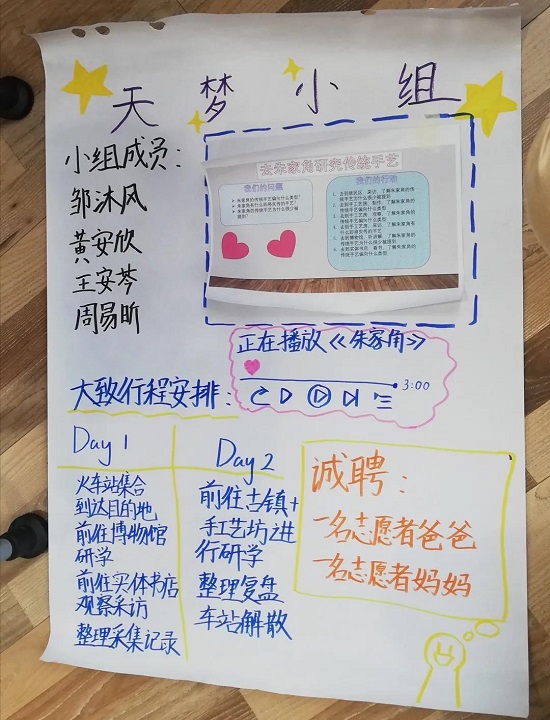 天梦小组
小组成员：
邹沐风
黄安欣
王安芩
周易昕
去朱家角研究传统手艺
我们的问题
我们的行动
正在播放《朱家角》
3:00
大致行程安排：
Day 1
火车站集合
到达目的地
前往博物馆
研学
前往实体书店
观察采访
整理采集记录
Day 2
前往古镇+
手工艺坊进
行研学
整理复盘
车站解散
诚聘：
一名志愿者爸爸
一名志愿者妈妈